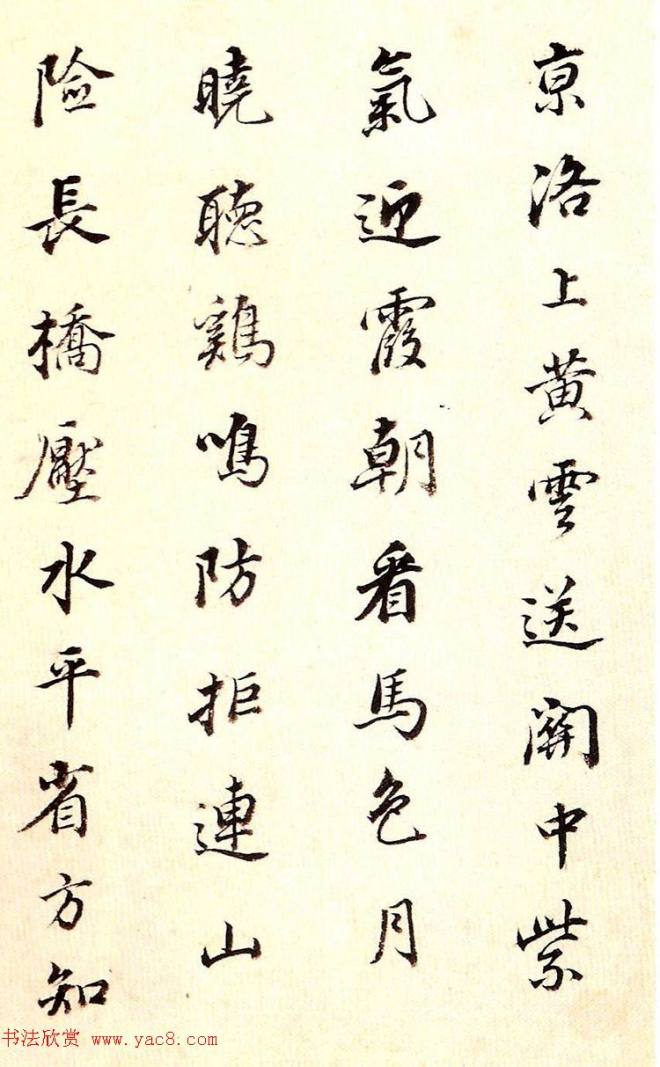 京洛上黄雲送關中紫
氣近霞朝看馬色月
曉聽鷄鳴防拒連山
險長橋壓水平省方知
书法欣赏 www.yac8.com